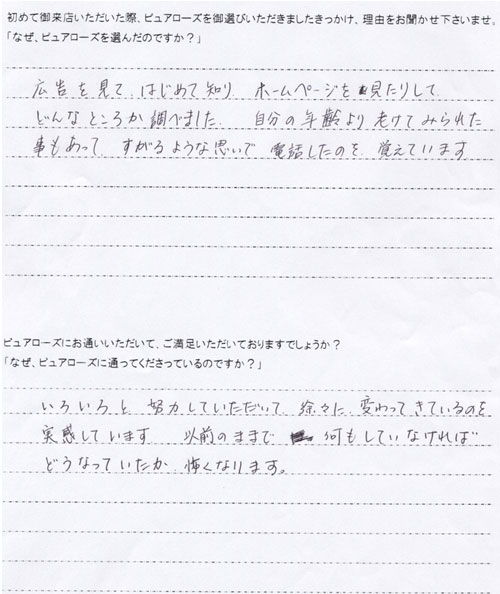 初めて御来店いただいた際、ピュアローズを御選びいただきましたきっかけ、理由をお聞かせ下さいませ。
「なぜ、ピュアローズを選んだのですか？」
広告を見て、はじめて知り ホームページを見たりして
どんなところか調べました。 自分の年齢より老けてみられた
事もあって すがるような思いで 電話したのを 覚えています
ピュアローズにお通いいただいて、ご満足いただいておりますでしょうか？
「なぜ、ピュアローズに通ってくださっているのですか？」
いろいろと 努力していただいて 徐々に 変わってきているのを
実感しています 以前のままで 何もしていなければ
どうなっていたか 怖くなります。